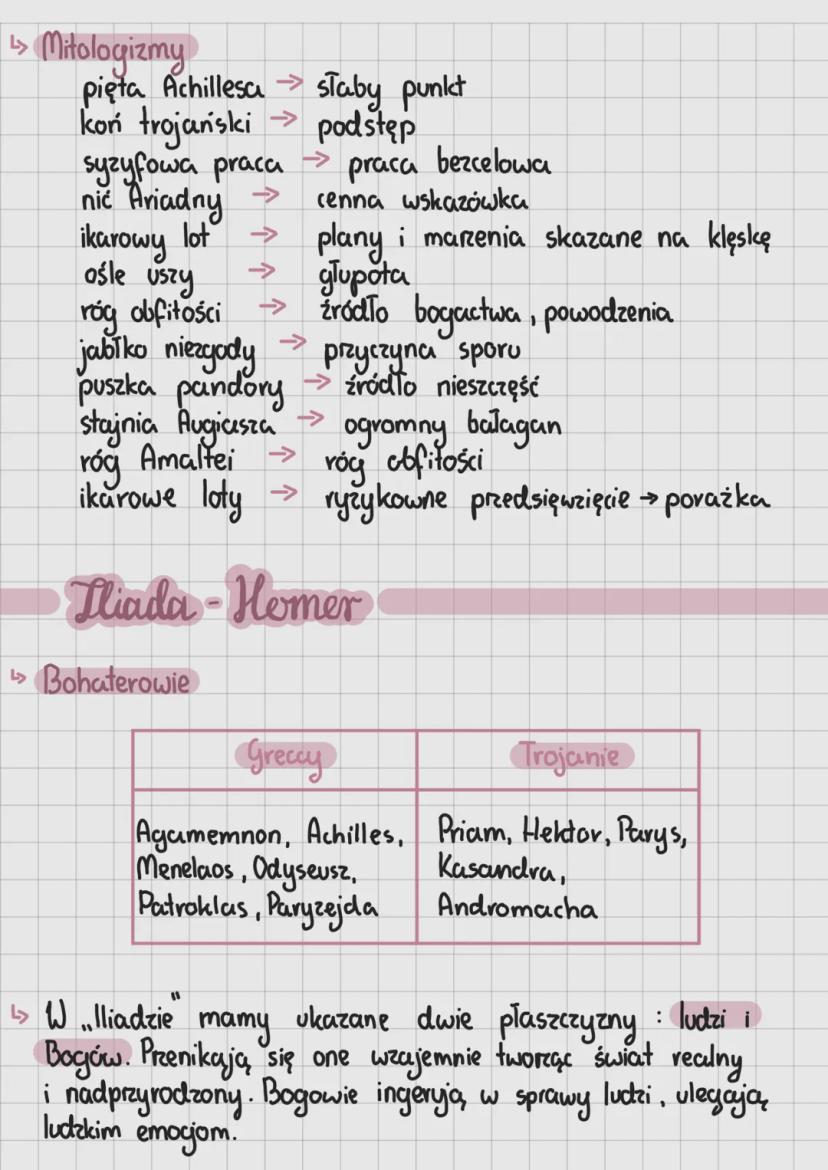 ↳ Mitologizmy
pięta Achillesa → słaby punkt
koń trojański → podstęp
syzyfowa praca → praca bezcelowa
nić Ariadny → cenna wskazówka
ikarowy lot → plany i marzenia skazane na klęskę
ośle uszy → głupota
róg obfitości → źródło bogactwa, powodzenia
jabłko niezgody → przyczyna sporu
puszka pandory → źródło nieszczęść
stajnia Augiasza → ogromny bałagan
róg Amaltei → róg obfitości
ikarowe loty → ryzykowne przedsięwzięcie → porażka
Iliada - Homer
↳ Bohaterowie
Greccy Trojanie
Agamemnon, Achilles, Priam, Hektor, Parys,
Menelaos, Odyseusz, Kasandra,
Patroklas, Paryzejda Andromacha
↳ W „Iliadzie" mamy ukazane dwie płaszczyzny : ludzi i
Bogów. Przenikają się one wzajemnie tworząc świat realny
i nadprzyrodzony. Bogowie ingerują w sprawy ludzi, ulegają
ludzkim emocjom.